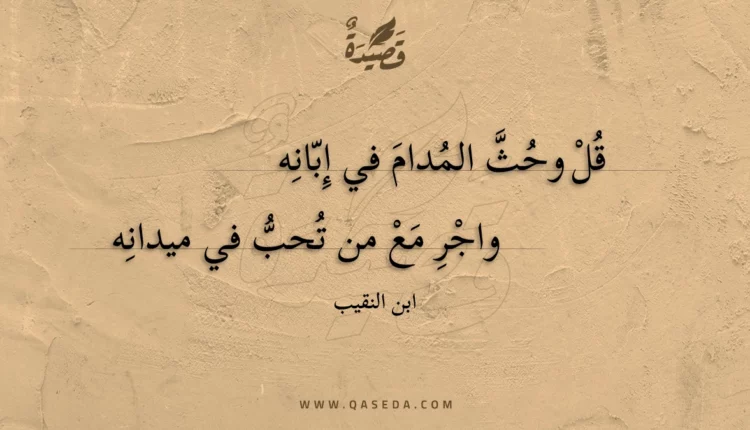 قَصِيْدَةٌ
قُلْ وحُثَّ المُدامَ في إِبّانِه
واجْرِ مَعْ من تُحبُّ في ميدانِه
ابن النقيب
WWW.QASEDA.COM